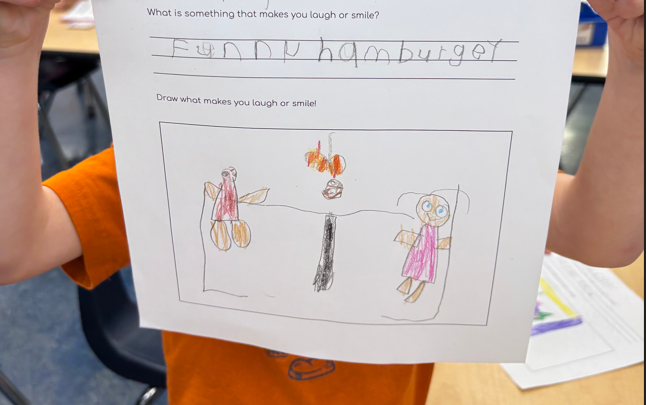 What is something that makes you laugh or smile?
Funny hamburger
Draw what makes you laugh or smile!